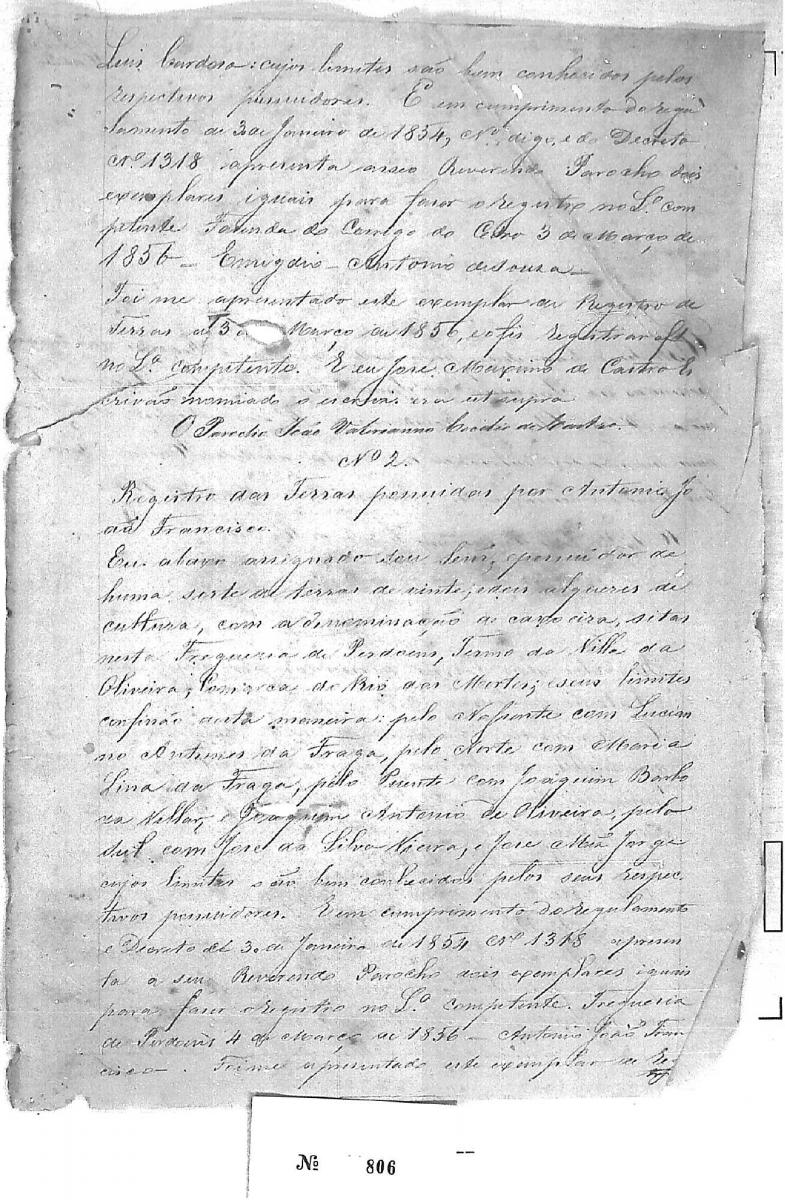 Luis Cardoso: cujos limites são bem conhecidos pelos
respectivos possuidores. E em cumprimento do regu
lamento de 30 de Janeiro de 1854, Nº, digo, e do Decreto
Nº 1318 apresenta a seo Reverendo Parocho dois
exemplares iguais para faser o registro no Lº com
petente Fazenda do Corrego do Cervo 3 de Março de
1856 - Emygdio Antonio de Sousa -
Foi me apresentado este exemplar de Registro de
Terras a 3 de Março de 1856, e o fis registrar
no Lº competente. E eu José Maximo de Castro Es
crivão nomiado o escrevi era ut supra
O Parocho João Valerianno
Nº 2.
Registro das Terras possuidas por Antonio Jo
aõ Francisco.
Eu abaxo assignado sou Senr, e possuidor de
huma sorte de terras de vinte, e dois alqueres de
cultura, com a dinominação de capoeira, sitas
nesta Freguezia de Perdoens, Termo da Villa da
Oliveira, Comarca do Rio das Mortes; e seus limites
confinão desta maneira: pelo Nassente com Lucian
no Antunes da Fraga, pelo Norte com Maria
Lina da Fraga, pelo Puente com Joaquim Barbo
za Villar, e Joaquim Antonio de Oliveira, pelo
Sul com José da Silva Vieira, e José Mª Jorge
cujos limites são bem conhecidos pelos seus respec
tivos possuidores. E em cumprimento do regulamento
e Decreto de 30 de Janeiro de 1854 Nº 1318 apresen
ta a seu Reverendo Parocho dois exemplares iguais
para faser o registro no Lº competente. Freguesia
de Perdoens 4 de Março de 1856 - Antonio João Fran
cisco - Foi me apresentado este exemplar de Re
Nº 806